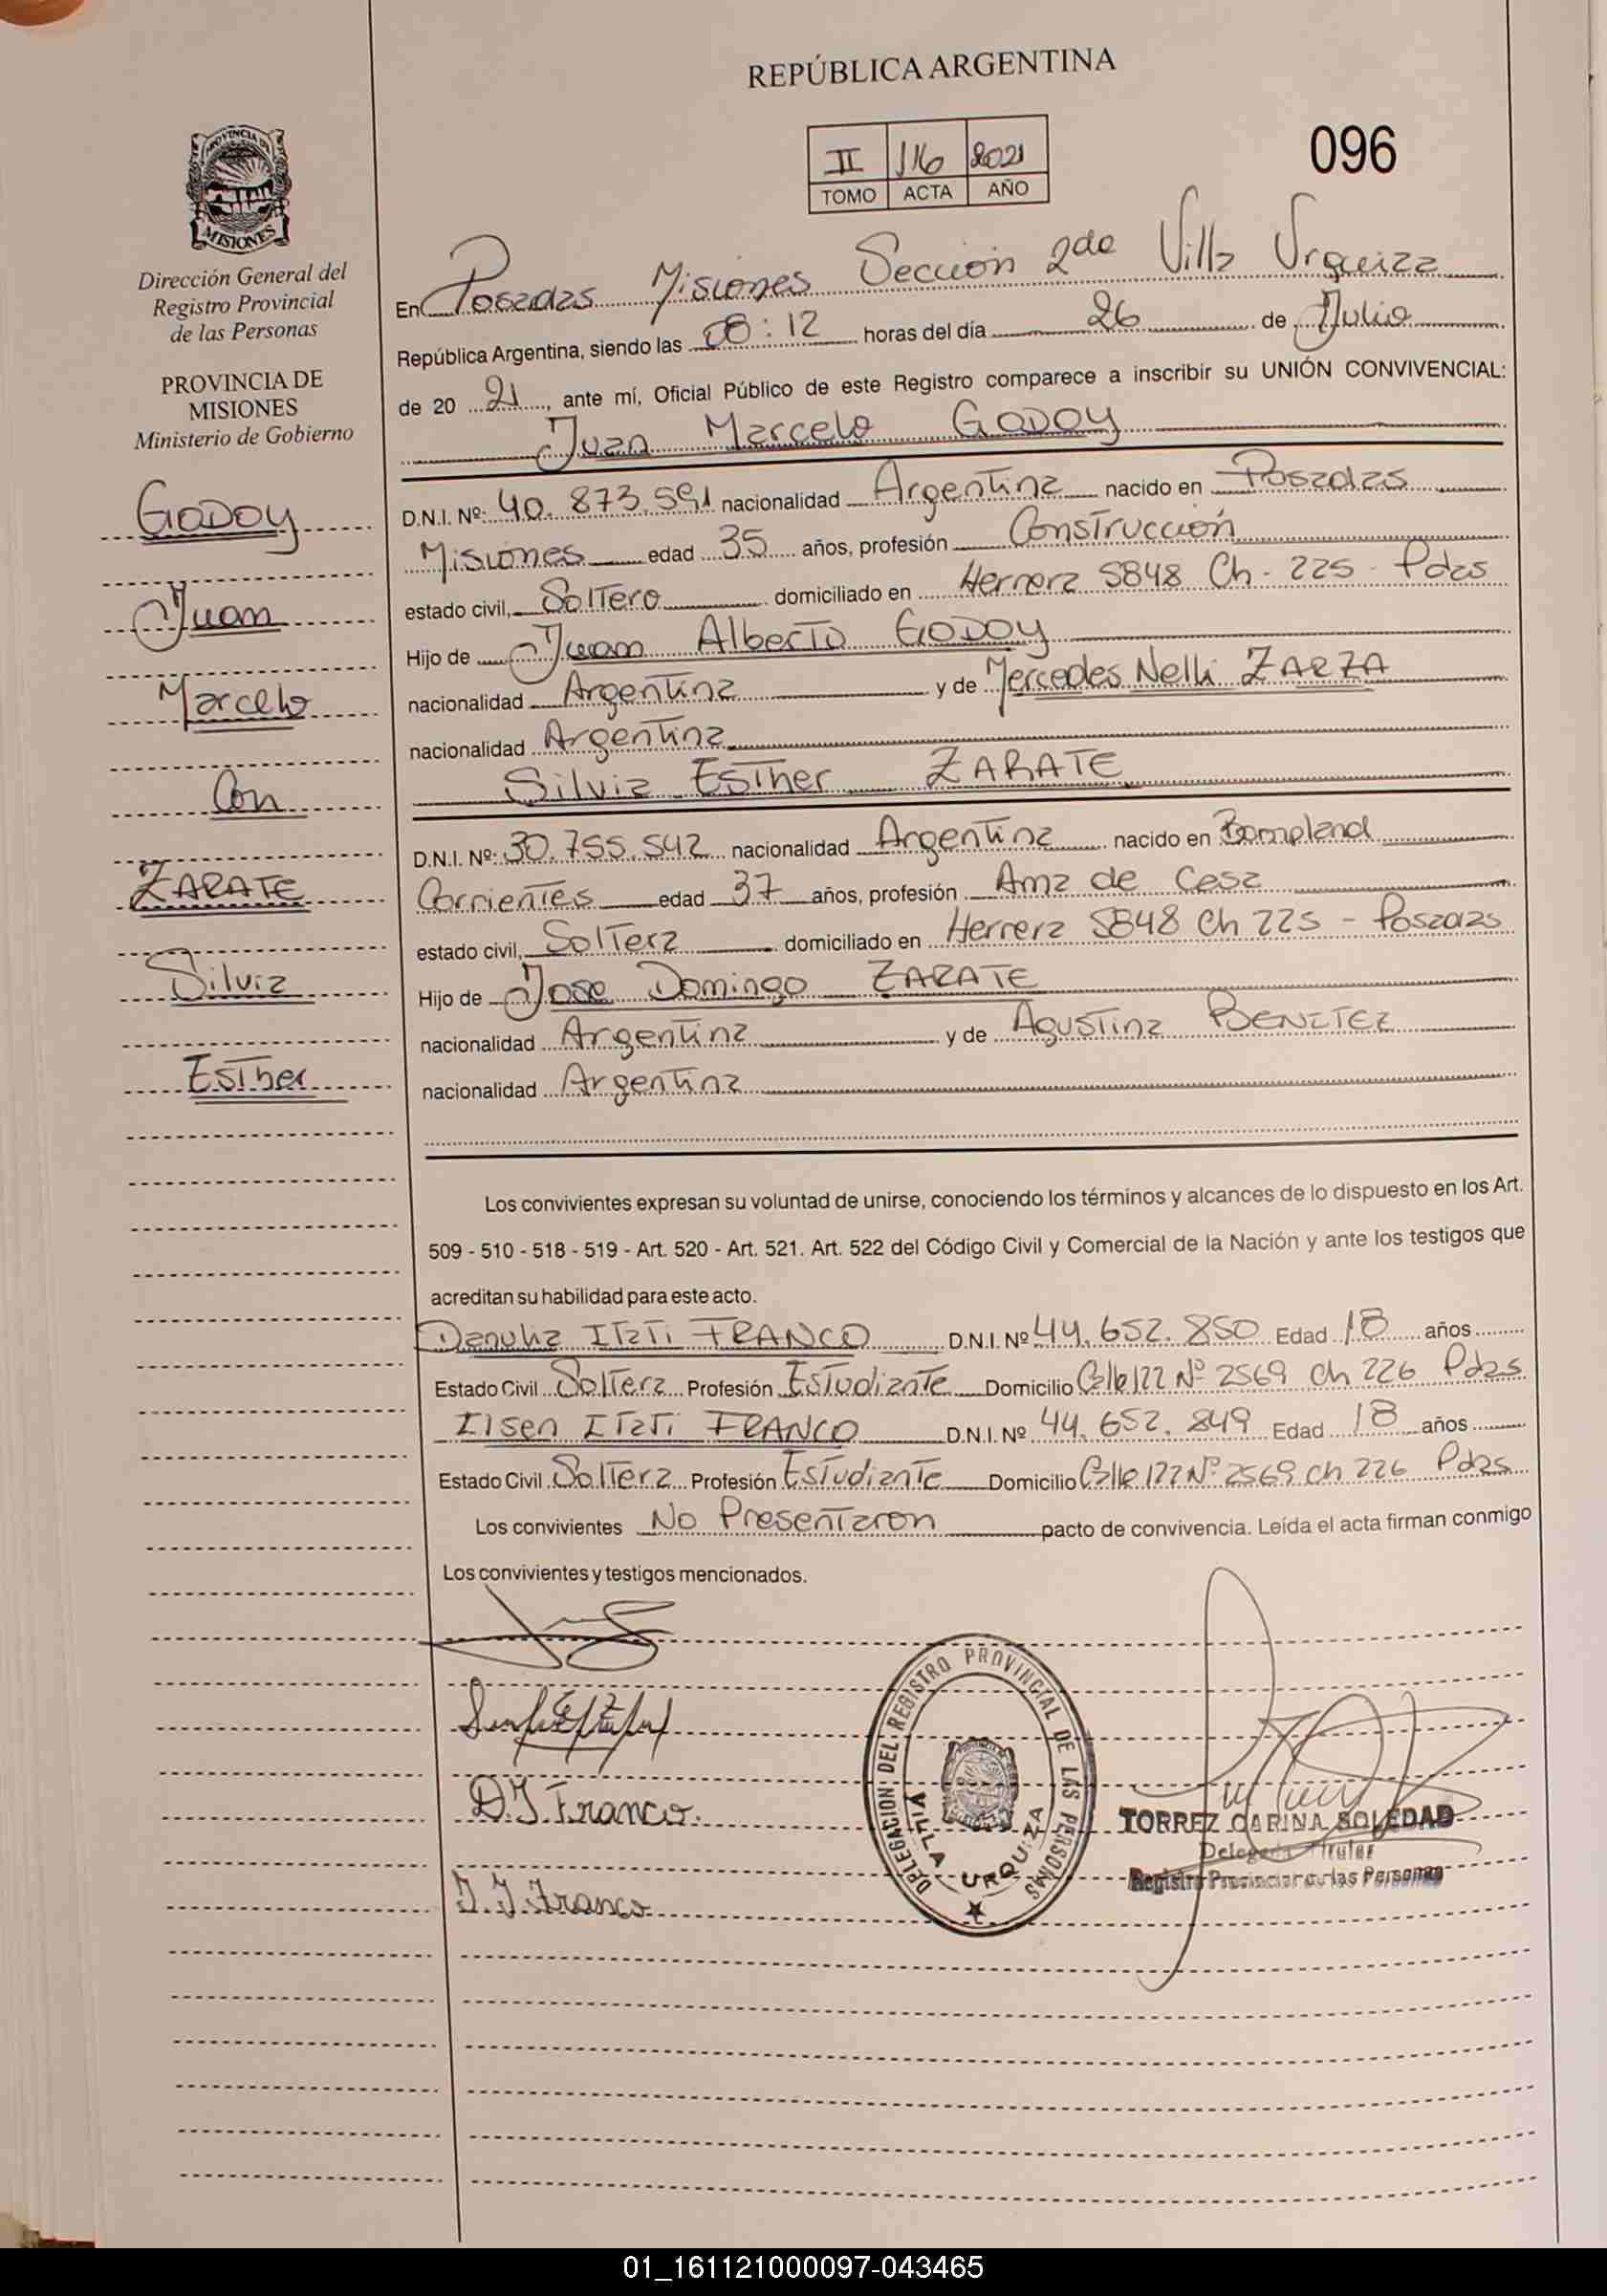 REPÚBLICA ARGENTINA
II 116 2021
TOMO ACTA AÑO
096
PROVINCIA DE
MISIONES
Dirección General del
Registro Provincial
de las Personas
PROVINCIA DE
MISIONES
Ministerio de Gobierno
GODOY
Juan
Marcelo
Con
ZARATE
Silvia
Esther
En Posadas Misiones Sección 2da Villa Urquiza
República Argentina, siendo las 08:12 horas del día 26 de Julio
de 20 21, ante mí, Oficial Público de este Registro comparece a inscribir su UNIÓN CONVIVENCIAL:
Juan Marcelo GODOY
D.N.I. Nº: 40.873.591 nacionalidad Argentina nacido en Posadas
Misiones edad 35 años, profesión Construcción
estado civil, Soltero domiciliado en Herrera 5848 Ch - 225 - Pdas
Hijo de Juan Alberto GODOY
nacionalidad Argentina y de Mercedes Nelli ZARZA
nacionalidad Argentina
Silvia Esther ZARATE
D.N.I. Nº: 30.755.542 nacionalidad Argentina nacido en Bompland
Corrientes edad 37 años, profesión Ama de Casa
estado civil, Soltera domiciliado en Herrera 5848 Ch 225 - Posadas
Hijo de Jose Domingo ZARATE
nacionalidad Argentina y de Agustina BENITEZ
nacionalidad Argentina
Los convivientes expresan su voluntad de unirse, conociendo los términos y alcances de lo dispuesto en los Art.
509 - 510 - 518 - 519 - Art. 520 - Art. 521. Art. 522 del Código Civil y Comercial de la Nación y ante los testigos que
acreditan su habilidad para este acto.
Danulia ITATI FRANCO D.N.I. Nº 44.652.850 Edad 18 años
Estado Civil Soltera Profesión Estudiante Domicilio Calle 122 Nº 2569 Ch 226 Pdas
Ilsen ITATI FRANCO D.N.I. Nº 44.652.849 Edad 18 años
Estado Civil Soltera Profesión Estudiante Domicilio Calle 122 Nº 2569 Ch 226 Pdas
Los convivientes No Presentaron pacto de convivencia. Leída el acta firman conmigo
Los convivientes y testigos mencionados.
D.I. Franco.
I.I. Franco
DELEGACION DEL REGISTRO PROVINCIAL DE LAS PERSONAS
VILLA URQUIZA
TORREZ CARINA SOLEDAD
Delegada Titular
Registro Provincial de las Personas
01_161121000097-043465